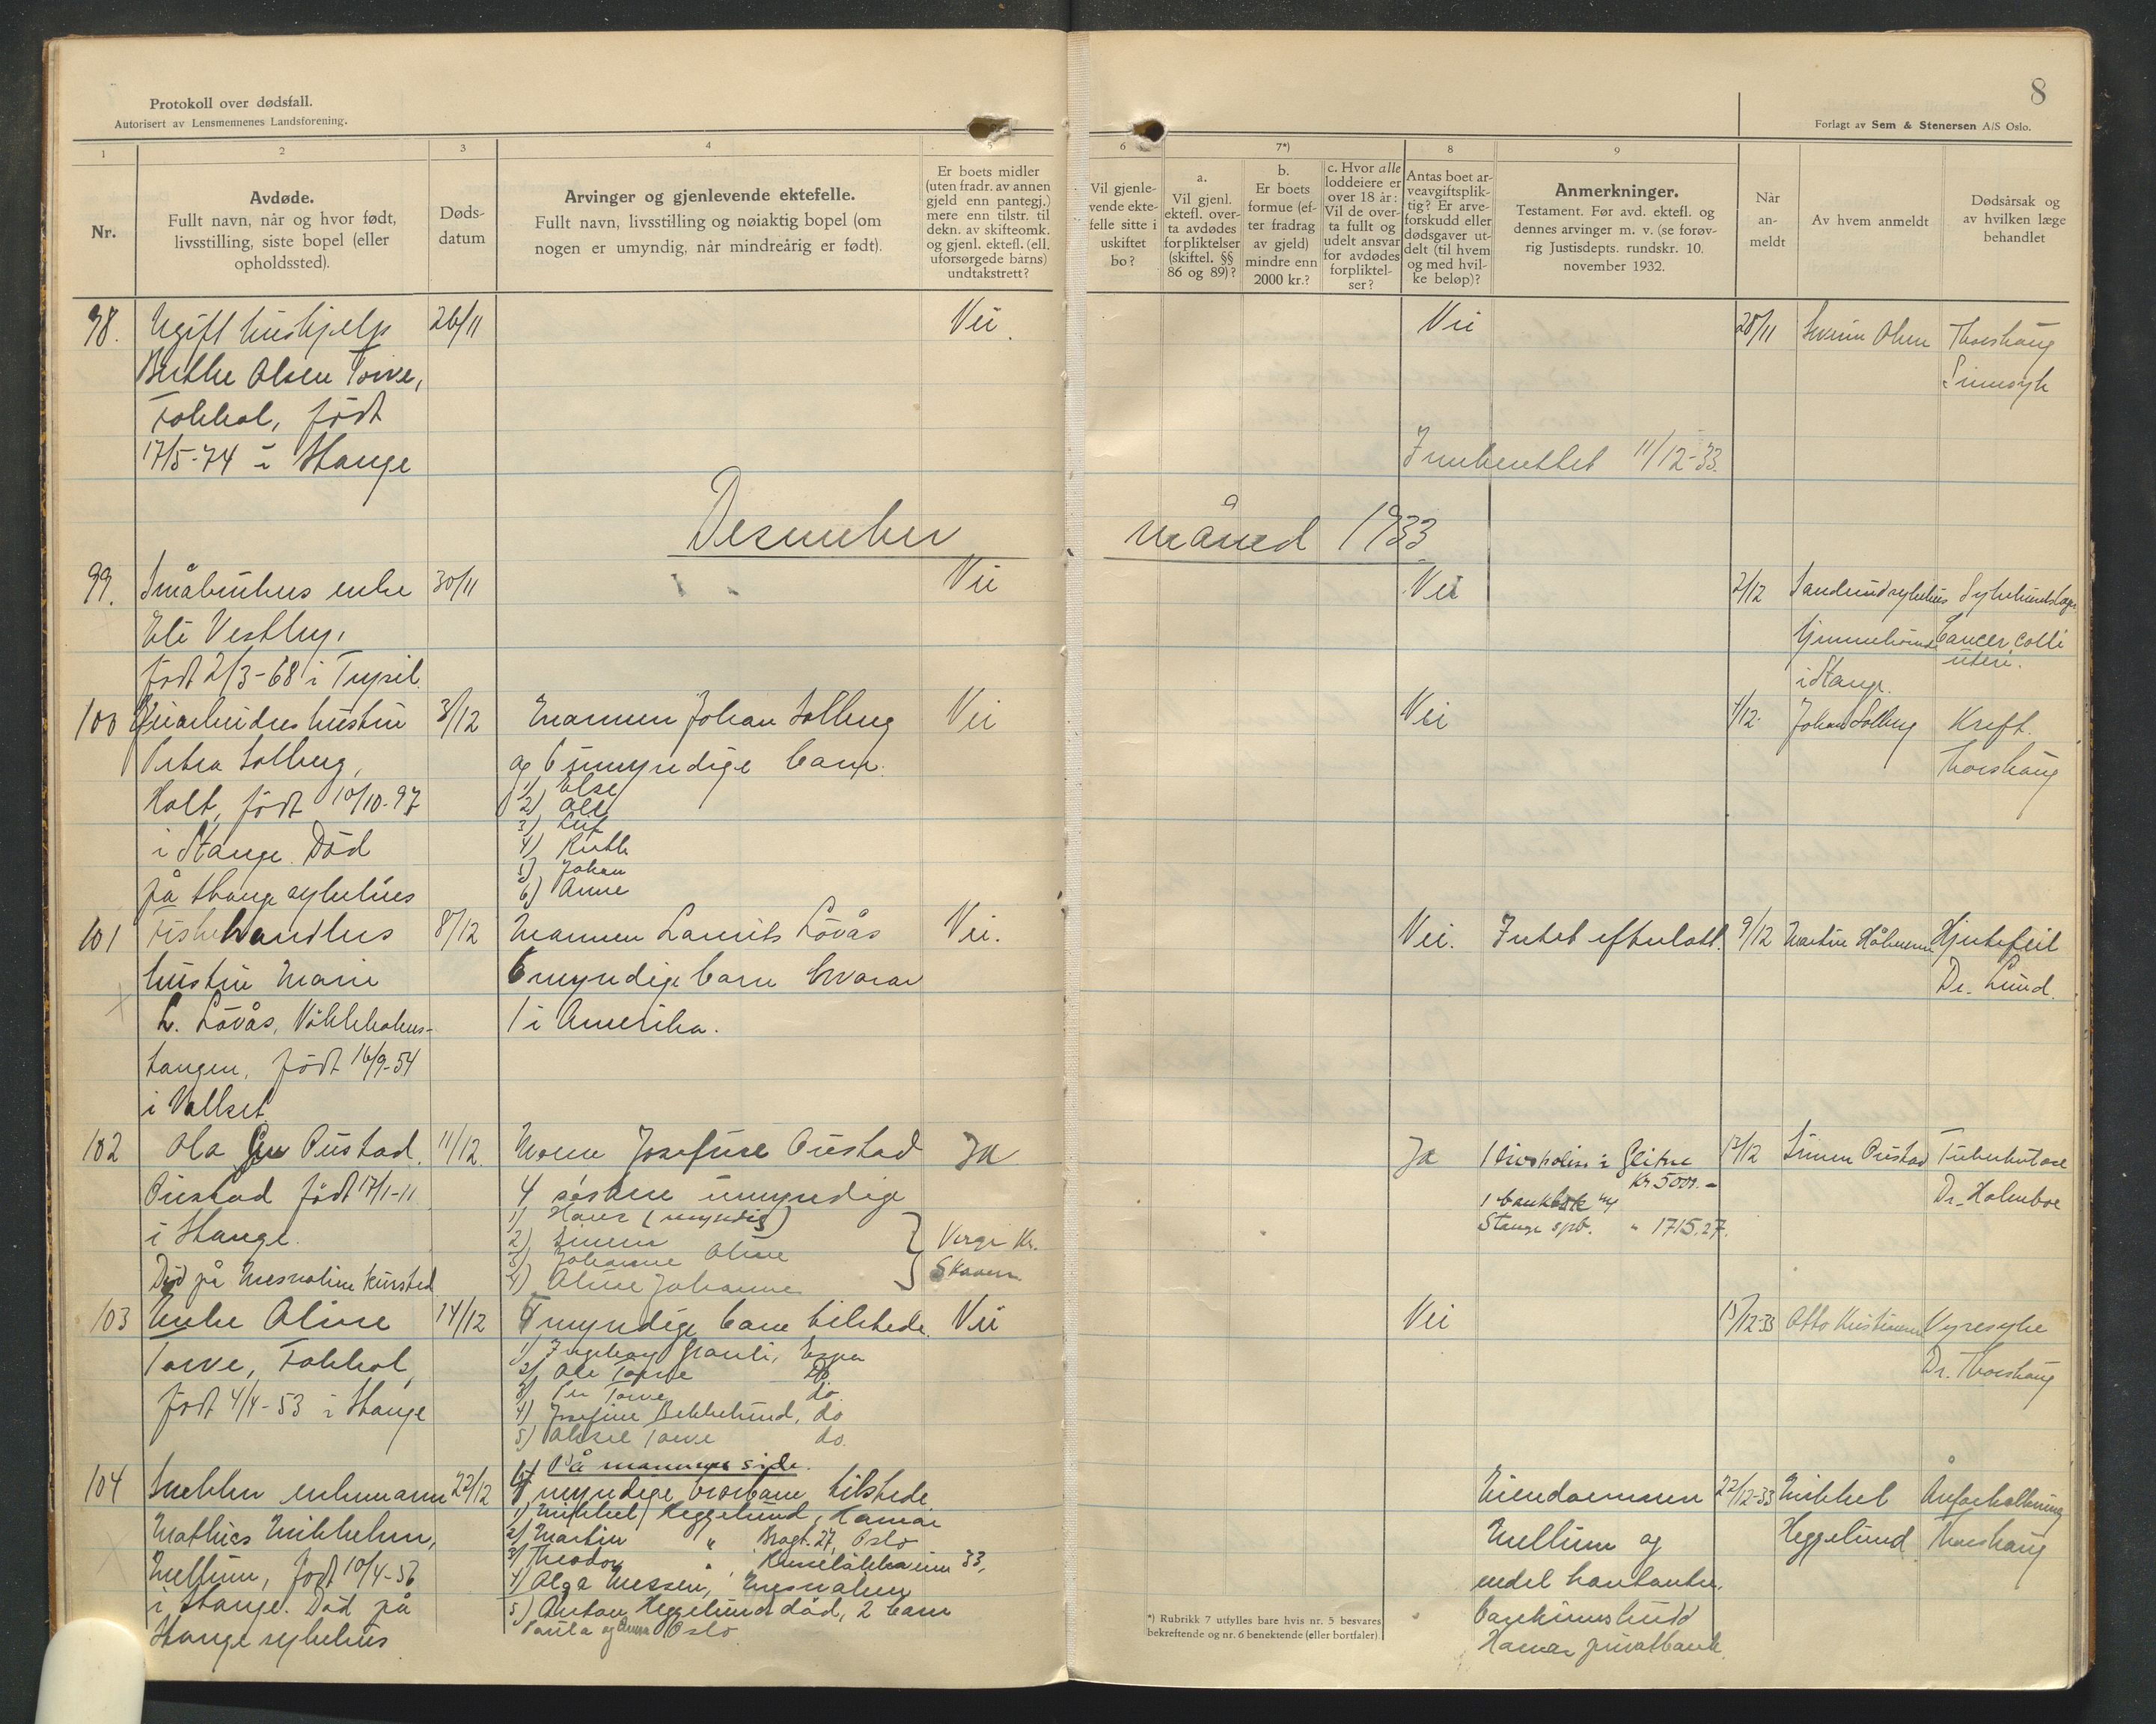 Protokoll over dødsfall.
Autorisert av Lensmennenes Landsforening.
8
Forlagt av Sem & Stenersen A/S Oslo.
1
2
3
4
5
6
7*)
8
9
Nr.
Avdøde.
Fullt navn, når og hvor født,
livsstilling, siste bopel (eller
opholdssted).
Døds-
datum
Arvinger og gjenlevende ektefelle.
Fullt navn, livsstilling og nøiaktig bopel (om
nogen er umyndig, når mindreårig er født).
Er boets midler
(uten fradr. av annen
gjeld enn pantegj.)
mere enn tilstr. til
dekn. av skifteomk.
og gjenl. ektefl. (ell.
uforsørgede bårns)
undtakstrett?
Vil gjenle-
vende ekte-
felle sitte i
uskiftet
bo?
a.
Vil gjenl.
ektefl. over-
ta avdødes
forpliktelser
(skiftel. §§
86 og 89)?
b.
Er boets
formue (ef-
ter fradrag
av gjeld)
mindre enn
2000 kr.?
c. Hvor alle
loddeiere er
over 18 år:
Vil de over-
ta fullt og
udelt ansvar
for avdødes
forpliktel-
ser?
Antas boet ar-
veavgiftsplik-
tig? Er arve-
forskudd eller
dødsgaver ut-
delt (til hvem
og med hvil-
ke beløp)?
Anmerkninger.
Testament. Før avd. ektefl. og
dennes arvinger m. v. (se forøv-
rig Justisdepts. rundskr. 10.
november 1932.
Når
an-
meldt
Av hvem anmeldt
Dødsårsak og
av hvilken læge
behandlet
98. Ugift hushjelp 26/11 Nei. Nei 28/11 Olsen Thorshaug
Berthe Olsen Torve, Sinnsyk
Tokkol, født
17/5-74 i Stange
Innberettet 11/12-33.
Desember måned 1933
99. Småbrukers enke 30/11 Nei Nei 2/12 Sanderud sykehus
Eli Vestby, Cancer colli
født 2/3-68 i Trysil. uteri.
i Stange.
100 hustru 3/12 Mannen Johan Solberg Nei Nei 4/12. Johan Solberg Kreft.
Petra Solberg, og 6 umyndige barn. Thorshaug
Holt, født 10/10-97 1) Else
2) Alf
3) Leif
i Stange. Død 4) Ruth
5) Johan
på Stange sykehus 6) Anne
101 Fiskehandlers 8/12 Mannen Laurits Lövås Nei. Nei. Intet efterlatt. 9/12 Hjertefeil
hustru Marie 6 myndige barn hvorav Dr. Lund.
L. Lövås, 1 i Amerika.
tangen, født 16/9-54
i Vallset
102 Ola Pustad 11/12. Moren Josefine Pustad Ja Ja 1 livspolise i Gjeitne 12/12 Simen Pustad Tuberkulose
Kr. 5000.-
Pustad født 17/1-11 4 søsken umyndige 1 bankbok Dr. Holmboe
1) Hans (myndig) Stange spb. " 1715.27.
i Stange. 2) Simen Verge Kr.
3) Johanne Oline
Død på Mesnalien kursted 4) Oline Johanne
103 Enke Oline 14/12 5 myndige barn tilstede. Nei Nei 15/12-33 Otto Kristiansen Nyresyke
Torve, Tokkol, 1) Ingeborg Granli, Espa Dr. Thorshaug
2) Ole Torve Do.
født 4/4-53 i Stange 3) Per Torve do.
4) Josefine Bekkelund, do
5) Torve do.
På mannens side.
104 Snekker enkemann 22/12 myndige brorbarn tilstede. Eiendommen 22/12-33 Mikkel Åreforkalkning
Mathias Mikkelsen, 1) Mikkel Heggelund, Hamar Mellum og Heggelund Thorshaug
2) Martin " Bragt. 27, Oslo
Mellum, født 10/4-56 3) Theodor " 33, endel kontanter.
4) Olga Messen, Mesnalien
i Stange. Død på 5) Anton Heggelund død, 2 barn
Stange sykehus Paula og Oslo. Hamar privatbank.
*) Rubrikk 7 utfylles bare hvis nr. 5 besvares
bekreftende og nr. 6 benektende (eller bortfaler).